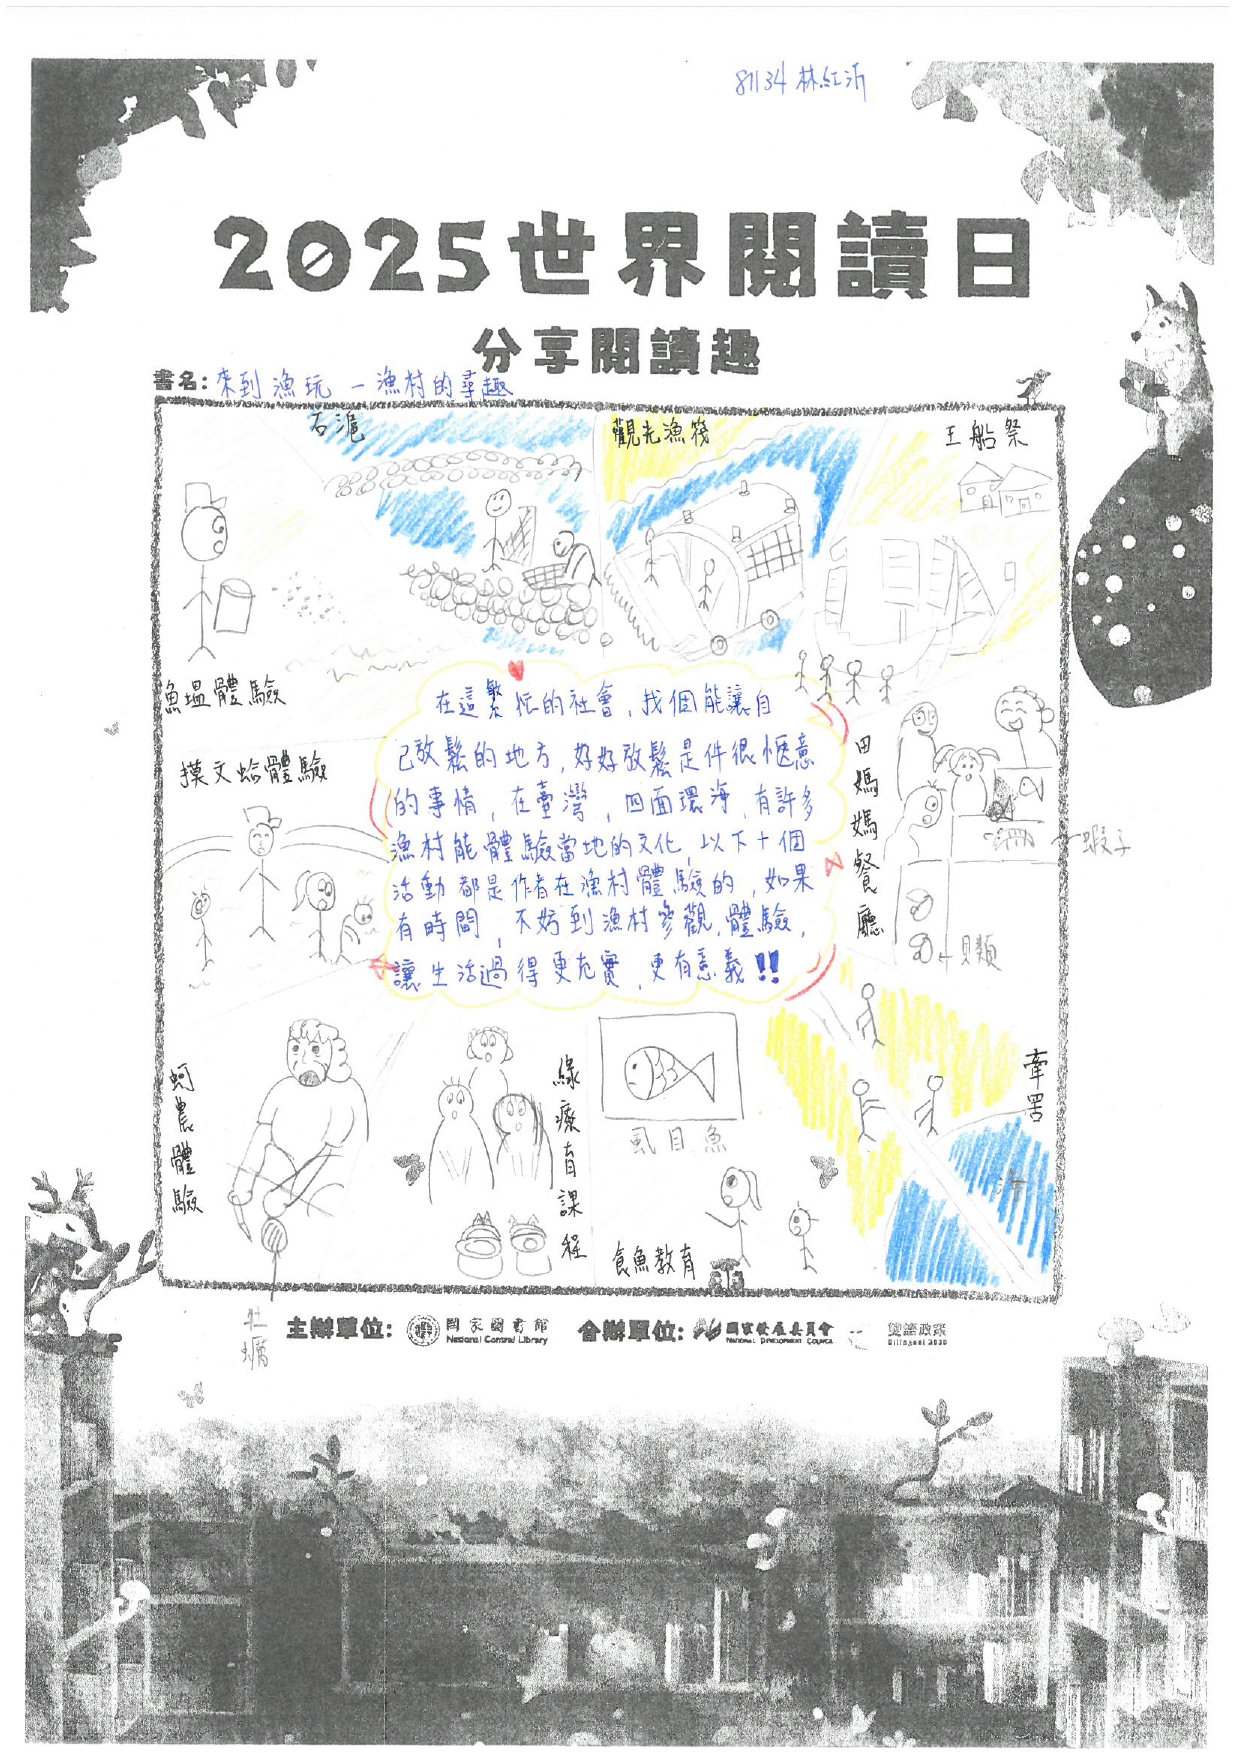 81134 林紅沂
2025世界閱讀日
分享閱讀趣
書名：來到漁玩－漁村的尋趣
石滬
觀光漁筏
王船祭
魚塭體驗
摸文蛤體驗
在這繁忙的社會，找個能讓自
己放鬆的地方，好好放鬆是件很愜意
的事情，在臺灣，四面環海，有許多
漁村能體驗當地的文化，以下十個
活動都是作者在漁村體驗的，如果
有時間，不妨到漁村參觀，體驗，
讓生活過得更充實，更有意義!!
田媽媽餐廳
蝦子
貝類
蚵農體驗
綠療育課程
虱目魚
食魚教育
牽罟
海
牡蠣
主辦單位：國家圖書館
National Central Library
合辦單位：國家發展委員會
National Development Council
雙語政策
Bilingual 2030